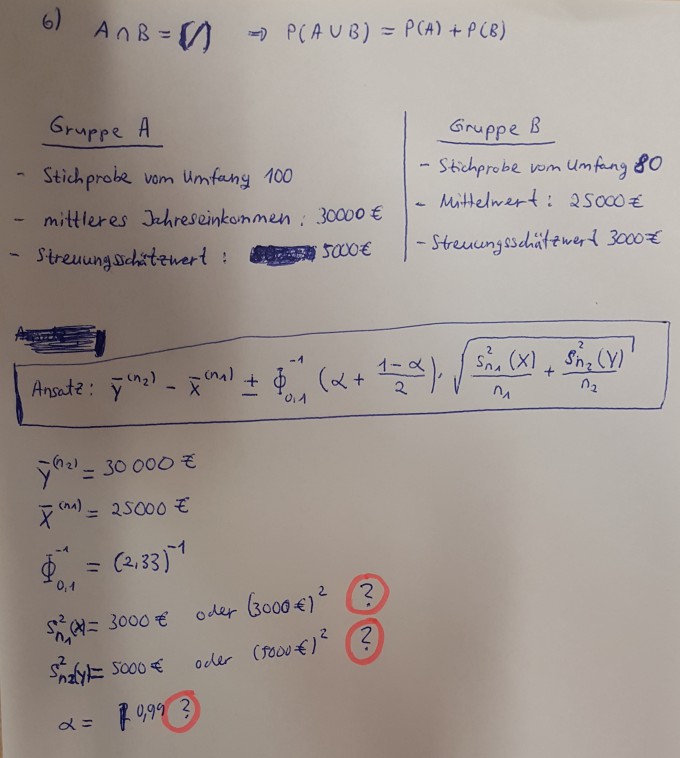 6) A ∩ B = {} ⇒ P(A ∪ B) = P(A) + P(B)
Gruppe A
- Stichprobe vom Umfang 100
- mittleres Jahreseinkommen: 30000 €
- Streuungsschätzwert: 5000 €
Gruppe B
- Stichprobe vom Umfang 80
- Mittelwert: 25000 €
- Streuungsschätzwert 3000 €
Ansatz: Ȳ^(n₂) - X̄^(n₁) ± Φ₀,₁^-1 (α + (1-α)/2) · √(S²n₁(X)/n₁ + S²n₂(Y)/n₂)
Ȳ^(n₂) = 30 000 €
X̄^(n₁) = 25000 €
Φ₀,₁^-1 = (2,33)^-1
S²n₁(X) = 3000 € oder (3000 €)² ?
S²n₂(Y) = 5000 € oder (5000 €)² ?
α = 0,99 ?